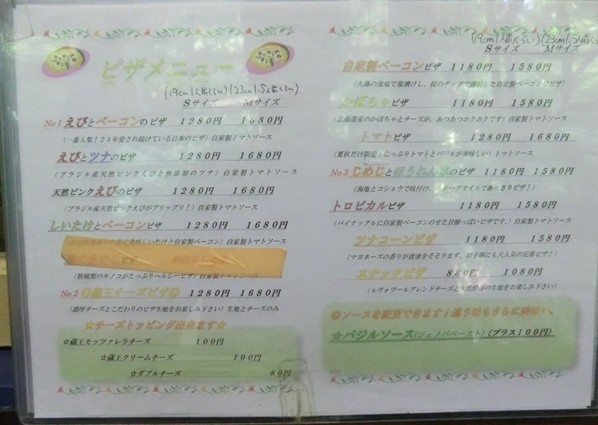 ピザメニュー
(19cm1人前くらい)(23cm1.5人前くらい)
Sサイズ Mサイズ
No1えびとベーコンのピザ 1280円 1680円
(一番人気!24年愛され続けている日本のピザ)自家製トマトソース
えびとツナのピザ 1280円 1680円
(ブラジル産天然ピンクえびと無添加のツナ)自家製トマトソース
天然ピンクえびのピザ 1280円 1680円
(ブラジル産天然ピンクえびがプリップリ!)自家製トマトソース
しいたけとベーコンピザ 1280円 1680円
自家製ベーコン)自家製トマトソース
(数種類のキノコがたっぷりヘルシーピザ)自家製トマトソース
No2◎蔵王チーズピザ◎ 1280円 1680円
(濃厚チーズとこだわりのピザ生地をお楽しみ下さい)生地とチーズのみ
☆チーズトッピング出来ます☆
☆蔵王モッツァレラチーズ 100円
☆蔵王クリームチーズ 100円
☆ダブルチーズ 80円
(19cm1人前くらい)(23cm1.5人前くらい)
Sサイズ Mサイズ
自家製ベーコンピザ 1180円 1580円
(大島の海塩で塩漬けし、桜のチップで燻製した自家製ベーコンピザ)
かぼちゃピザ 1180円 1580円
かぼちゃとチーズが、あつあつホクホクです!)自家製トマトソース
トマトピザ 1180円 1580円
(夏秋だけ限定!たっぷりトマトとバジルが美味しい)トマトソース
No3しめじとほうれん草のピザ 1180円 1580円
(海塩とコショウで味付け、オリーブオイルであっさりピザ!)
トロピカルピザ 1180円 1580円
(パイナップルにベーコンのせた甘酸っぱいピザです。)自家製トマトソース
ツナコーンピザ 1180円 1580円
(マヨネーズの香りが食欲をそそります。お子様にも大人気の定番ピザ)
スナックピザ 880円 1080円
◎ソースを変更できます!
☆バジルソース(ジェノバペースト)(プラス100円)